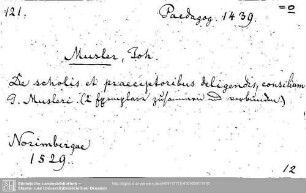 121. Paedagog. 1439. = 8
Musler, Joh.
De scholis et praeceptoribus deligendis, consilium
J. Musleri. (2 Exemplare zusammen verbunden)
Norimbergae
1529.
12